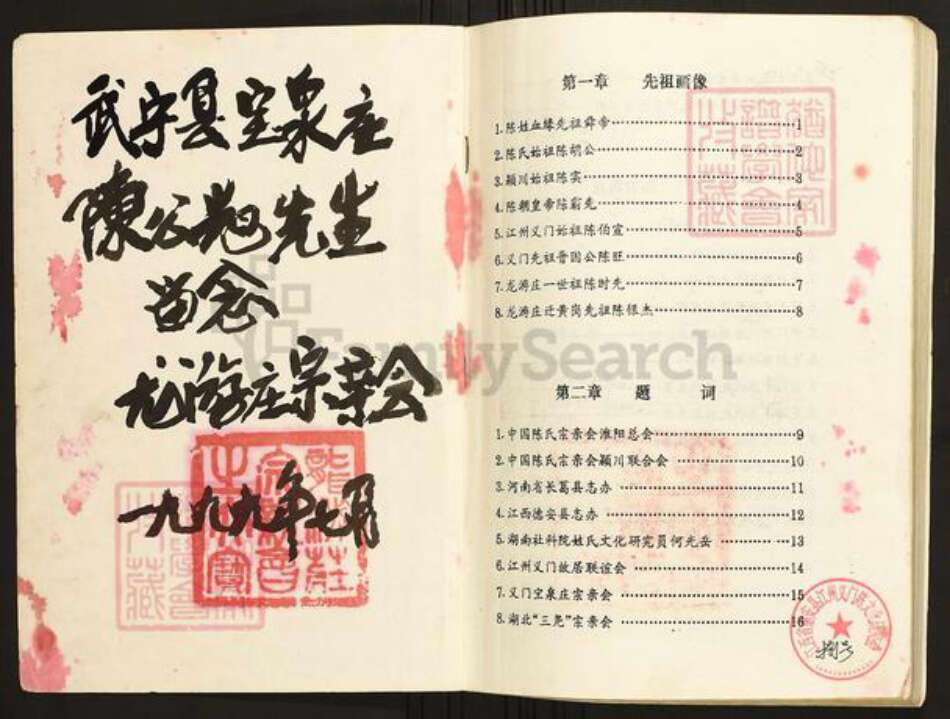 武宁县宝泉庄
陳公旭先生
留念
龙游庄宗亲会
一九九九年七月
第一章 先祖画像
1.陈姓血缘先祖舜帝……1
2.陈氏始祖陈胡公……2
3.颍川始祖陈寔……3
4.陈朝皇帝陈霸先……4
5.江州义门始祖陈伯宣……5
6.义门先祖晋国公陈旺……6
7.龙游庄一世祖陈时先……7
8.龙游庄迁黄岗先祖陈银杰……8
第二章 题 词
1.中国陈氏宗亲会淮阳总会……9
2.中国陈氏宗亲会颍川联合会……10
3.河南省长葛县志办……11
4.江西德安县志办……12
5.湖南社科院姓氏文化研究员何光岳……13
6.江州义门故居联谊会……14
7.义门宝泉庄宗亲会……15
8.湖北“三尧”宗亲会……16
FamilySearch